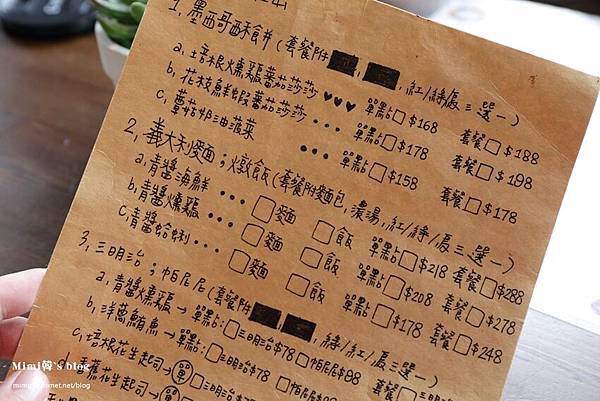 1. 墨西哥酥餅(套餐附██, ██, 紅/綠/廢三選一)
a. 培根燻雞蕃茄莎莎 ♥♥♥ 單點□$168 套餐□$188
b. 花枝鮮蝦蕃茄莎莎 ... 單點□$178 套餐□$198
c. 蘑菇奶油菠菜 ... 單點□$158 套餐□$178
2. 義大利麵;火敦飯(套餐附麵包, 濃湯, 紅/綠/廢三選一)
a. 青醬海鮮 ... □麵 □飯 單點□$218 套餐□$288
b. 青醬燻雞 ... □麵 □飯 單點□$208 套餐□$278
c. 青醬蛤蜊 ... □麵 □飯 單點□$178 套餐□$248
3. 三明治;帕尼尼(套餐附██, ██, 綠/紅/廢三選一)
a. 青醬燻雞→單點:□三明治$78 □帕尼尼$98
b. 洋蔥鮪魚→單點:□三明治$78 □帕尼尼$88 套餐□三明
c. 培根花生起司→單點□三明治$78
花生起司→單
Mimi韓's blog